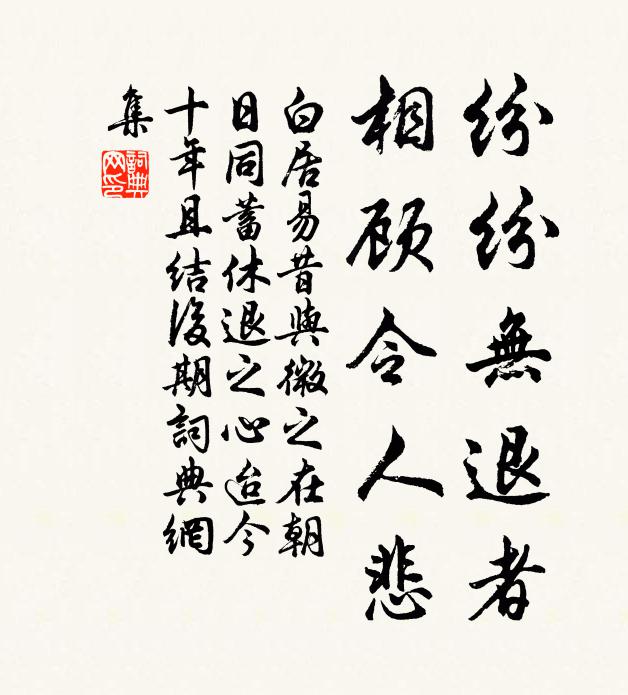 紛紛無退者
相顾令人悲
白居易昔與微之在朝
日同蓄休退之心迨今
十年且結後期詞典網
集
詞典
网印